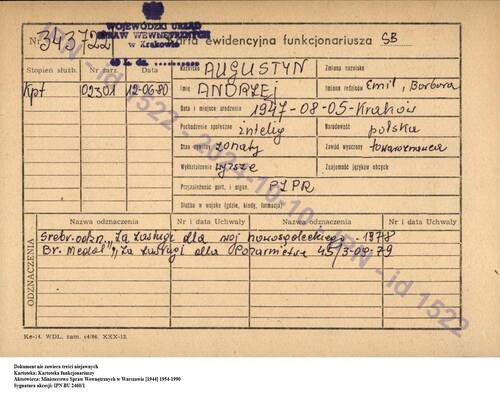 WOJEWÓDZKI URZĄD
SPRAW WEWNĘTRZNYCH
w Krakowie
Nr 343722
Karta ewidencyjna funkcjonariusza SB
Stopień służb. Nr rozk. Data
Kpt 02301 12-06-80
Nazwisko AUGUSTYN
Zmiana nazwiska
Imię ANDRZEJ
Imiona rodziców Emil, Barbara
Data i miejsce urodzenia 1947-08-05-Kraków
Pochodzenie społeczne intelig
Narodowość polska
Stan cywilny żonaty
Zawód wyuczony towaroznawca
Wykształcenie wyższe
Znajomość języków obcych
Przynależność part. i organ. PZPR
Służba w wojsku (gdzie, kiedy, formacja)
ODZNACZENIA
Nazwa odznaczenia Nr i data Uchwały Nazwa odznaczenia Nr i data Uchwały
Srebr. odzn. „Za zasługi dla woj nowosądeckiego 1978
Br. Medal „Za zasługi dla Pożarnictwa 45/3-08-79
Ke-14. WDL. zam. s4/86. XXX-13.
IPN - id 1522 - 2024-10-10 - IPN - id 1522
Dokument nie zawiera treści niejawnych
Kartoteka: Kartoteka funkcjonariuszy
Aktotwórca: Ministerstwo Spraw Wewnętrznych w Warszawie [1944] 1954-1990
Sygnatura akcesji: IPN BU 2460/1